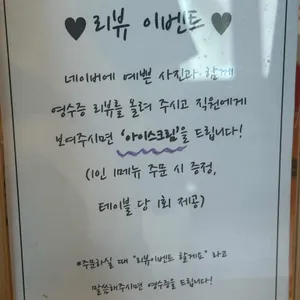 ♥ 리뷰 이벤트 ♥
네이버에 예쁜 사진과 함께
영수증 리뷰를 올려 주시고 직원에게
보여주시면 '아이스크림'을 드립니다!
(1인 1메뉴 주문 시 증정,
테이블 당 1회 제공)
*주문하실 때 "리뷰이벤트 할게요" 라고
말씀해주시면 영수증을 드립니다!